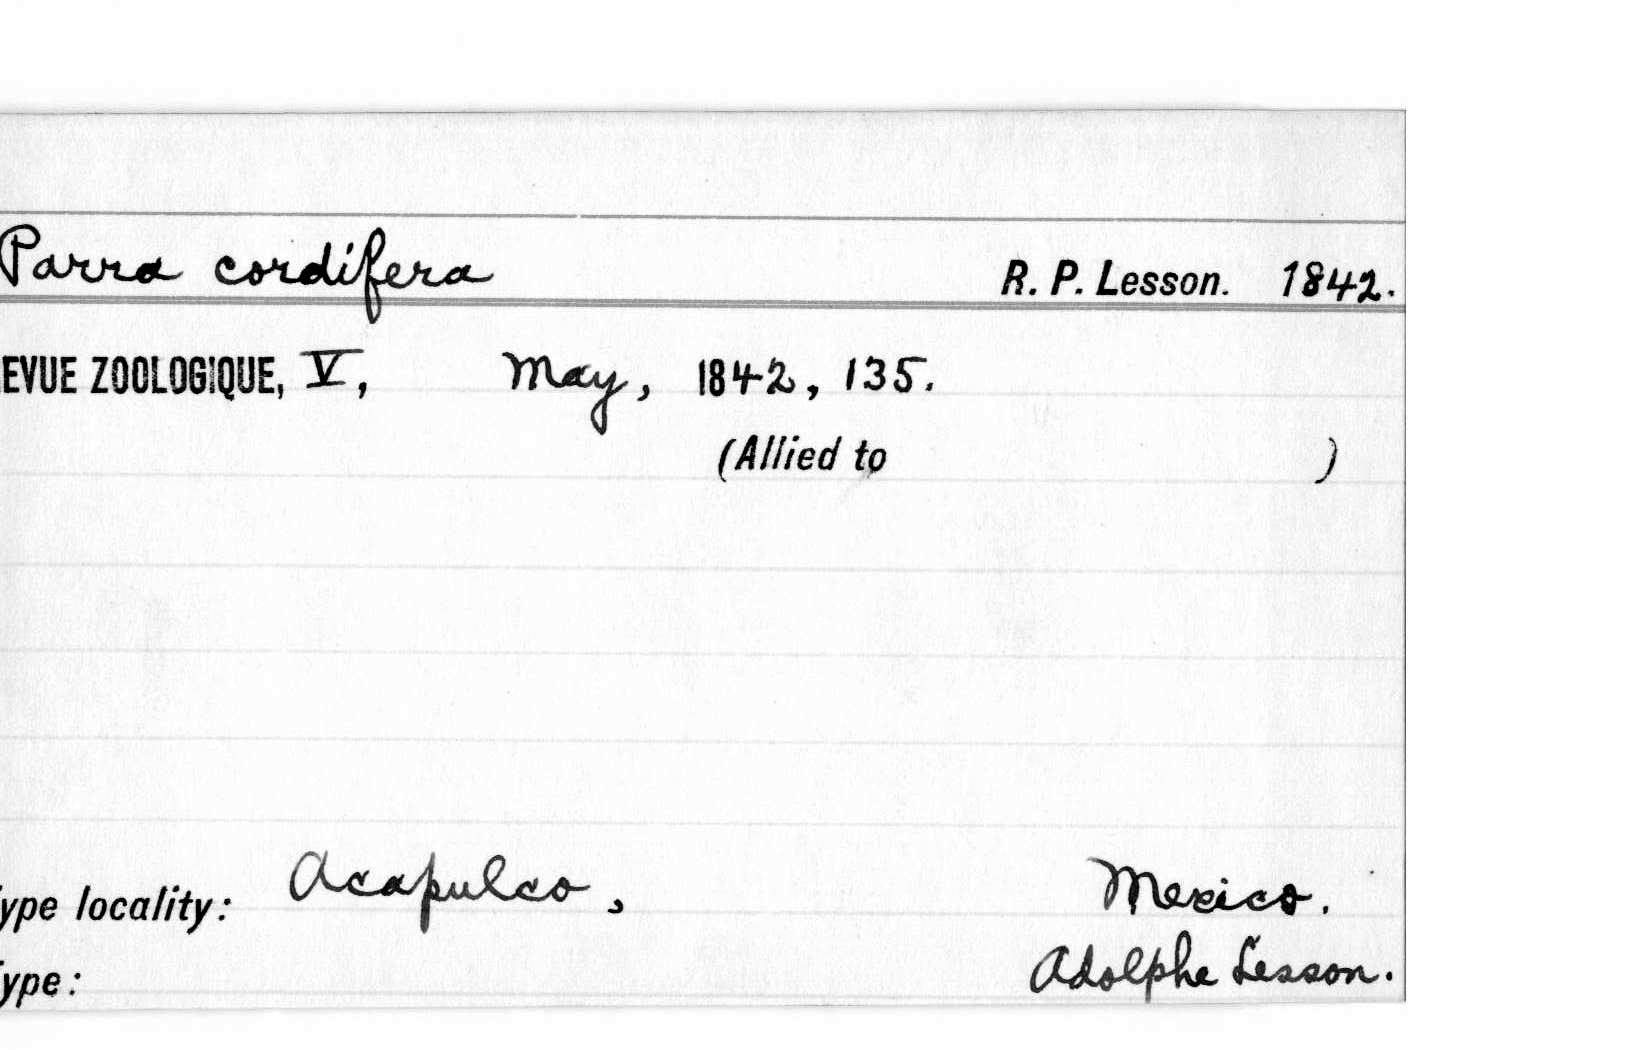 Parra cordifera R. P. Lesson. 1842.
EVUE ZOOLOGIQUE, V, May, 1842, 135.
(Allied to )
ype locality: Acapulco, Mexico.
ype: Adolphe Lesson.